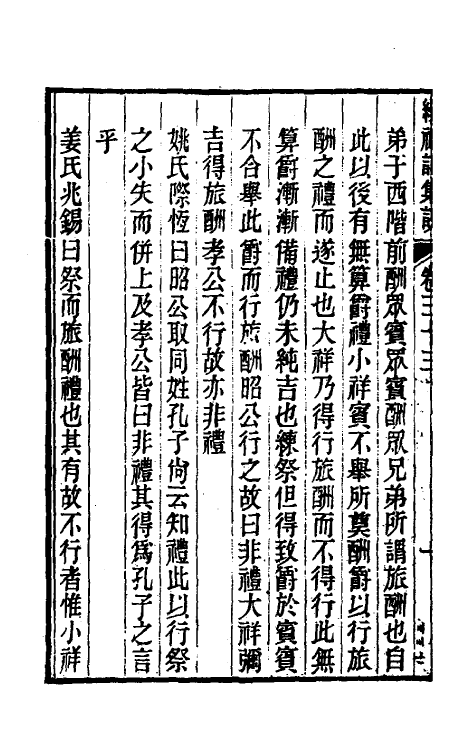 續禮記集說 卷三十三
弟于西階前酬眾賓眾賓酬眾兄弟所謂旅酬也自
此以後有無算爵禮小祥賓不舉所奠酬爵以行旅
酬之禮而遂止也大祥乃得行旅酬而不得行此無
算爵漸漸備禮仍未純吉也練祭但得致爵於賓賓
不合舉此爵而行旅酬昭公行之故曰非禮大祥彌
吉得旅酬孝公不行故亦非禮
姚氏際恆曰昭公取同姓孔子尙云知禮此以行祭
之小失而併上及孝公皆曰非禮其得爲孔子之言
乎
姜氏兆錫曰祭而旅酬禮也其有故不行者惟小祥